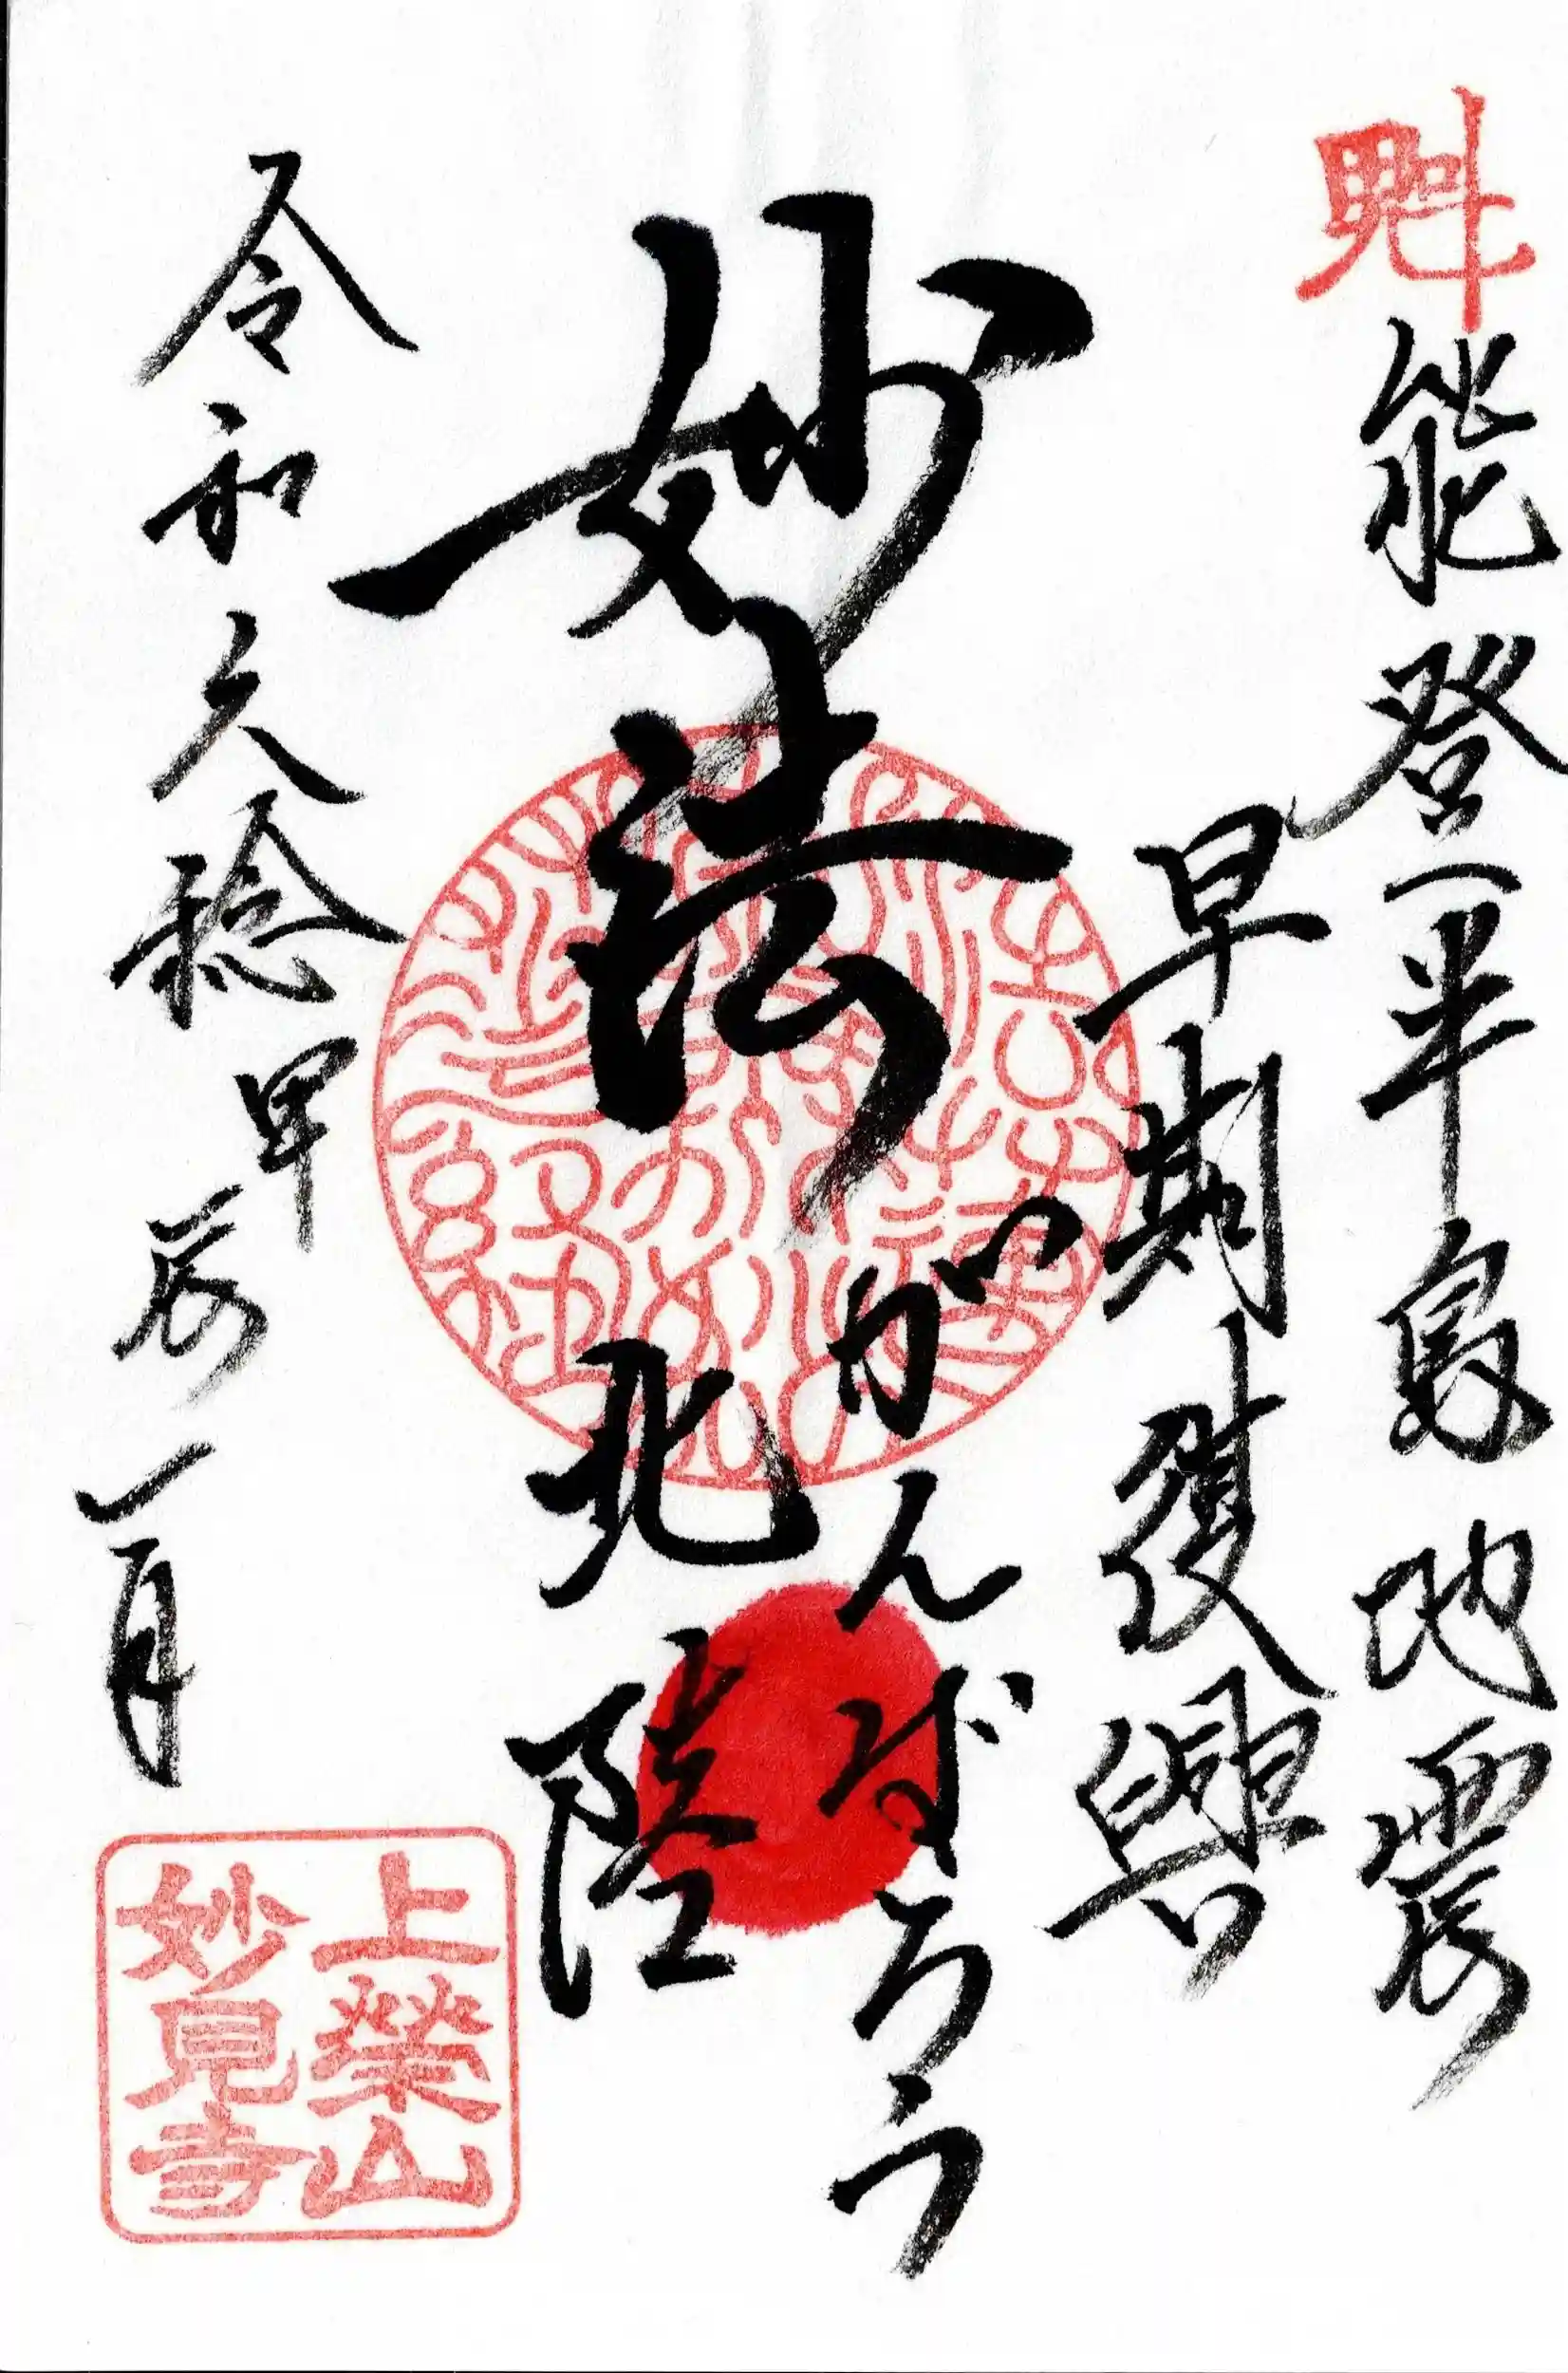 魁
能登半島地震
早期復興
妙法
がんばろう
北陸
令和六稔甲辰一月
上榮山
妙見寺